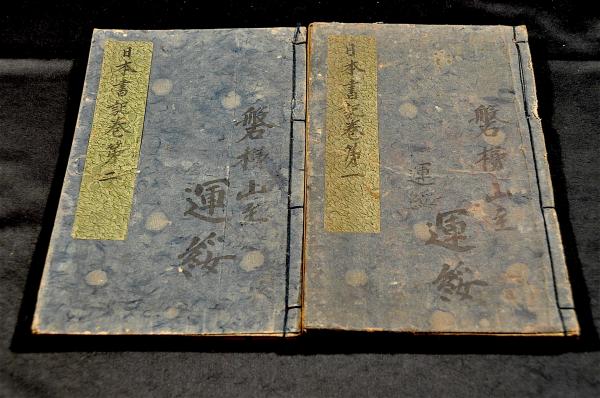 日本書紀巻第一
磐梯山主
運綏
運綏
日本書紀巻第二
磐梯山主
運綏